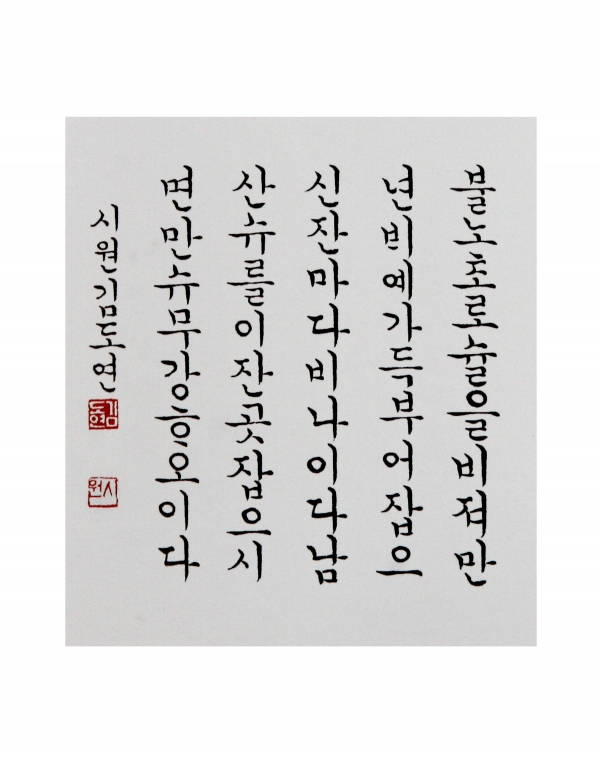 불노초로슐을비져만
년ᄇᆡ예가득부어잡으
신잔마다비나이다남
산슈를이잔곳잡으시
면만슈무강ᄒᆞ오이다
시원김도연
김도연
시원